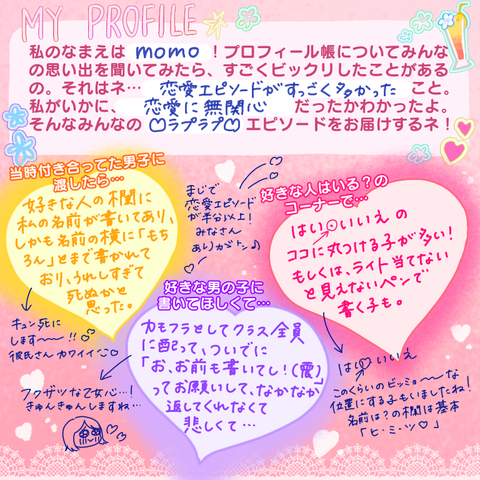 MY PROFILE
私のなまえは momo ！プロフィール帳についてみんな
の思い出を聞いてみたら、すごくビックリしたことがある
の。それはネ… 恋愛エピソードがすっごく多かった こと。
私がいかに、 恋愛に無関心 だったかわかったよ。
そんなみんなの ♡ラブラブ♡ エピソードをお届けするネ！
当時付き合ってた男子に
渡したら…
好きな人の欄に
私の名前が書いてあり、
しかも名前の横に「もち
ろん」とまで書かれて
おり、うれしすぎて
死ぬかと
思った。
キュン死に
します〜〜!!
彼氏さんカワイイ♡
まじで
恋愛エピソード
が半分以上！
みなさん
ありがトン♪
好きな人はいる？の
コーナーで…
はい♡いいえ の
ココに丸つける子が多い！
もしくは、ライト当てない
と見えないペンで
書く子も。
はい♡いいえ
このくらいのビッミョ〜〜な
位置にする子もいましたね！
名前は？の欄は基本
「ヒ・ミ・ツ♡」
好きな男の子に
書いてほしくて…
カモフラとしてクラス全員
に配って、ついでに
「お、お前も書いてし！(震)」
ってお願いして、なかなか
返してくれなくて
悲しくて…
フクザツな乙女心…！
きゅんきゅんしますね…